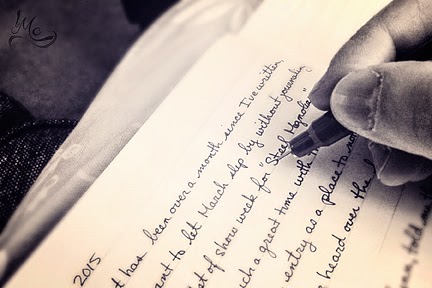 Mc
2015
t has been over a month since I've written,
ant to let March slip by without journaling
st of show week for "Steel Magnolia
ch a great time with
entry as a place to
heard over the
told